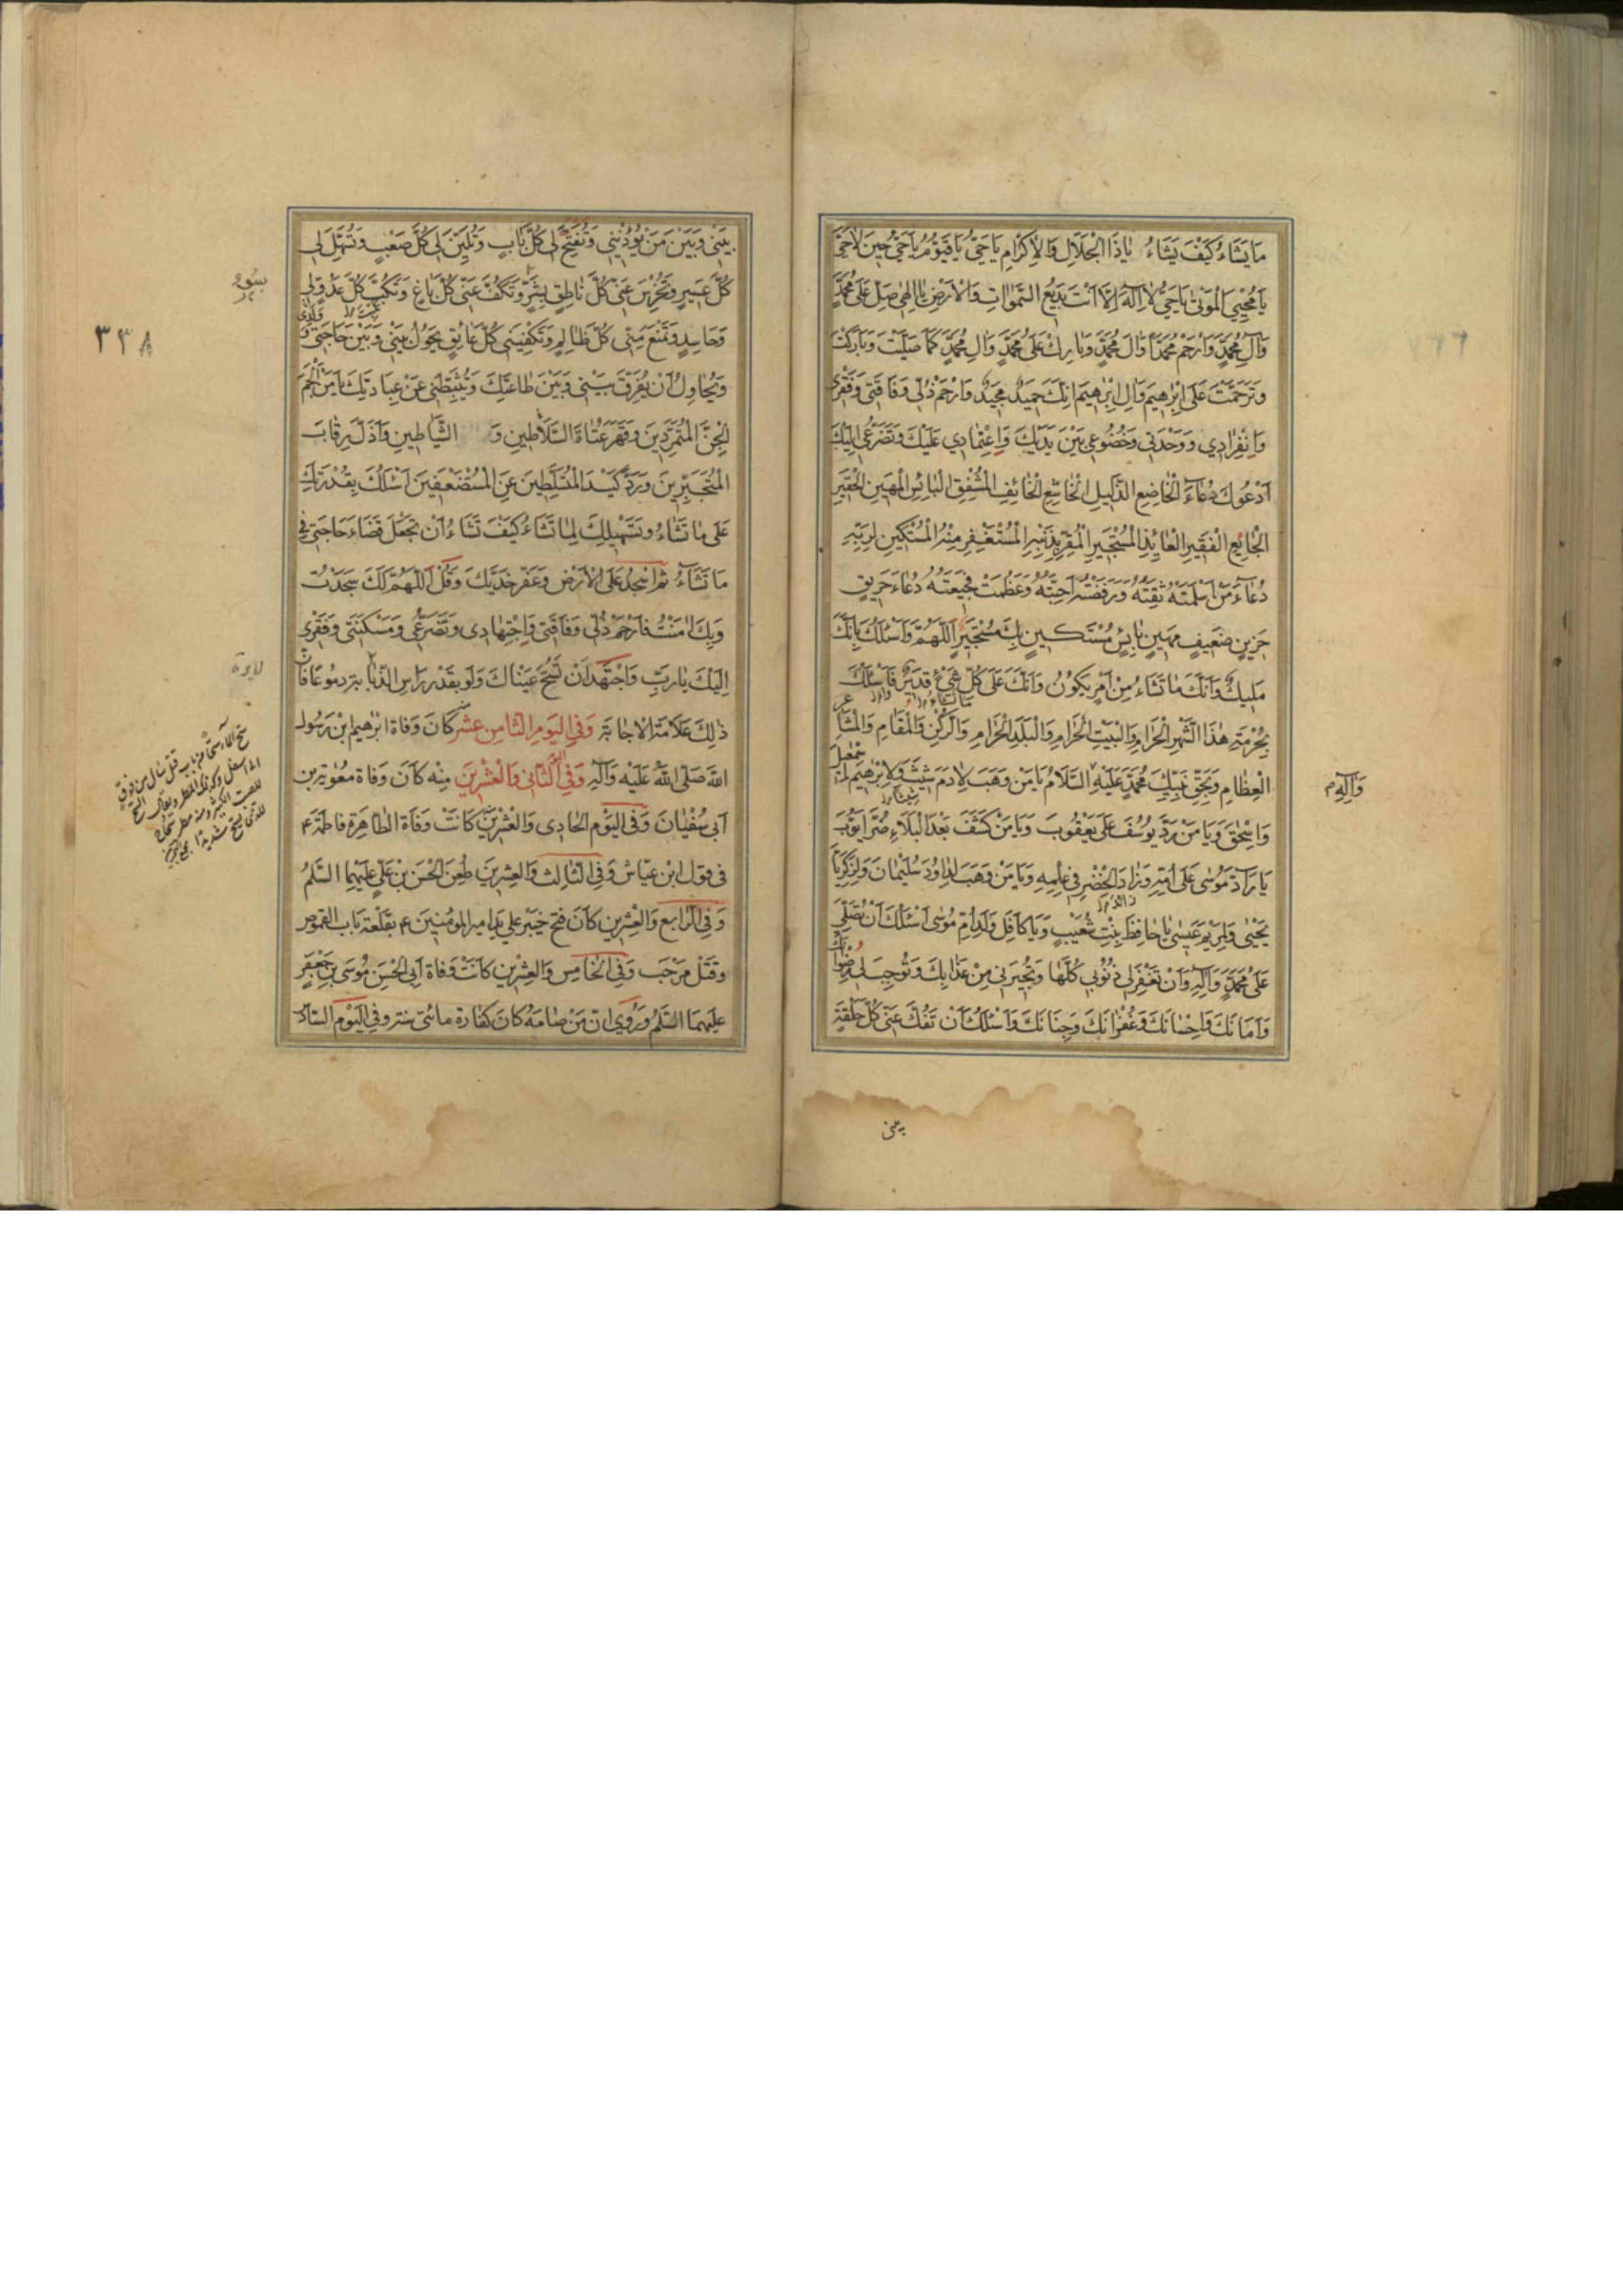 مَا يَشَاءُ كَيْفَ يَشَاءُ يَا ذَا الْجَلَالِ وَالْاِكْرَامِ يَا حَيُّ يَا قَيُّوْمُ يَا حَيُّ حِينَ لَا حَيَّ
يَا مُحْيِيَ الْمَوْتٰى يَا حَيُّ لَا اِلٰهَ اِلَّا اَنْتَ بَدِيْعُ السَّمٰوَاتِ وَالْاَرْضِ يَا اِلٰهِي صَلِّ عَلٰى مُحَمَّدٍ
وَآلِ مُحَمَّدٍ وَارْحَمْ مُحَمَّدًا وَآلَ مُحَمَّدٍ وَبَارِكْ عَلٰى مُحَمَّدٍ وَآلِ مُحَمَّدٍ كَمَا صَلَّيْتَ وَبَارَكْتَ
وَتَرَحَّمْتَ عَلٰى اِبْرٰهِيمَ وَآلِ اِبْرٰهِيمَ اِنَّكَ حَمِيدٌ مَجِيدٌ وَارْحَمْ ذُلِّي وَفَاقَتِي وَفَقْرِي
وَانْفِرَادِي وَوَحْدَتِي وَخُضُوعِي بَيْنَ يَدَيْكَ وَاعْتِمَادِي عَلَيْكَ وَتَضَرُّعِي اِلَيْكَ
اَدْعُوكَ دُعَاءَ الْخَاضِعِ الذَّلِيلِ الْخَاشِعِ الْخَائِفِ الْمُشْفِقِ الْبَائِسِ الْمَهِينِ الْحَقِيرِ
الْجَائِعِ الْفَقِيرِ الْعَائِذِ الْمُسْتَجِيرِ الْمُقِرِّ بِذَنْبِهِ الْمُسْتَغْفِرِ مِنْهُ الْمُسْتَكِينِ لِرَبِّهِ
دُعَاءَ مَنْ اَسْلَمَتْهُ ثِقَتُهُ وَرَفَضَتْهُ اَحِبَّتُهُ وَعَظُمَتْ فَجِيعَتُهُ دُعَاءَ حَرِيقٍ
حَزِينٍ ضَعِيفٍ مَهِينٍ بَائِسٍ مُسْتَكِينٍ بِكَ مُسْتَجِيرٍ اَللّٰهُمَّ وَاَسْئَلُكَ بِاَنَّكَ
مَلِيكٌ وَاَنَّكَ مَا تَشَاءُ مِنْ اَمْرٍ يَكُونُ وَاَنَّكَ عَلٰى كُلِّ شَيْءٍ قَدِيرٌ فَاَسْئَلُكَ
بِحُرْمَةِ هٰذَا الشَّهْرِ الْحَرَامِ وَالْبَيْتِ الْحَرَامِ وَالْبَلَدِ الْحَرَامِ وَالرُّكْنِ وَالْمَقَامِ وَالْمَشَاعِرِ
الْعِظَامِ وَبِحَقِّ نَبِيِّكَ مُحَمَّدٍ عَلَيْهِ السَّلَامُ يَا مَنْ وَهَبَ لِاٰدَمَ شِيثَ وَلِاِبْرٰهِيمَ اِسْمٰعِيلَ
وَآلِهِ
وَاِسْحٰقَ وَيَا مَنْ رَدَّ يُوسُفَ عَلٰى يَعْقُوبَ وَيَا مَنْ كَشَفَ بَعْدَ الْبَلَاءِ ضُرَّ اَيُّوبَ
يَا رَادَّ مُوسٰى عَلٰى اُمِّهِ وَزَادَ الْخَضِرِ فِي عِلْمِهِ وَيَا مَنْ وَهَبَ لِدَاوُدَ سُلَيْمَانَ وَلِزَكَرِيَّا
يَحْيٰى وَلِمَرْيَمَ عِيسٰى يَا حَافِظَ بِنْتِ شُعَيْبٍ وَيَا كَافِلَ وَلَدِ اُمِّ مُوسٰى اَسْئَلُكَ اَنْ تُصَلِّيَ
عَلٰى مُحَمَّدٍ وَآلِهِ وَاَنْ تَغْفِرَ لِي ذُنُوبِي كُلَّهَا وَتُجِيرَنِي مِنْ عَذَابِكَ وَتُوجِبَ لِي رِضْوَانَكَ
وَاَمَانَكَ وَاِحْسَانَكَ وَغُفْرَانَكَ وَجِنَانَكَ وَاَسْئَلُكَ اَنْ تَفُكَّ عَنِّي كُلَّ حَلْقَةٍ
بيني
بَيْنِي وَبَيْنَ مَنْ يُؤْذِينِي وَتَفْتَحَ لِي كُلَّ بَابٍ وَتُلَيِّنَ لِي كُلَّ صَعْبٍ وَتُسَهِّلَ لِي
كُلَّ عَسِيرٍ وَتُخْرِسَ عَنِّي كُلَّ نَاطِقٍ بِشَرٍّ وَتَكُفَّ عَنِّي كُلَّ بَاغٍ وَتَكْبِتَ كُلَّ عَدُوٍّ لِي
وَحَاسِدٍ وَتَمْنَعَ مِنِّي كُلَّ ظَالِمٍ وَتَكْفِيَنِي كُلَّ عَائِقٍ يَحُولُ بَيْنِي وَبَيْنَ حَاجَتِي
٣٣٨
وَيُحَاوِلُ اَنْ يُفَرِّقَ بَيْنِي وَبَيْنَ طَاعَتِكَ وَيُثَبِّطَنِي عَنْ عِبَادَتِكَ يَا مَنْ اَلْجَمَ
الْجِنَّ الْمُتَمَرِّدِينَ وَقَهَرَ عُتَاةَ السَّلَاطِينِ وَ الشَّيَاطِينِ وَاَذَلَّ رِقَابَ
الْمُتَجَبِّرِينَ وَرَدَّ كَيْدَ الْمُتَسَلِّطِينَ عَنِ الْمُسْتَضْعَفِينَ اَسْئَلُكَ بِقُدْرَتِكَ
عَلٰى مَا تَشَاءُ وَتَسْهِيلِكَ لِمَا تَشَاءُ كَيْفَ تَشَاءُ اَنْ تَجْعَلَ قَضَاءَ حَاجَتِي فِي
مَا تَشَاءُ ثُمَّ اسْجُدْ عَلَى الْاَرْضِ وَعَفِّرْ خَدَّيْكَ وَقُلْ اَللّٰهُمَّ لَكَ سَجَدْتُ
وَبِكَ اٰمَنْتُ فَارْحَمْ ذُلِّي وَفَاقَتِي وَاجْتِهَادِي وَتَضَرُّعِي وَمَسْكَنَتِي وَفَقْرِي
اِلَيْكَ يَا رَبِّ وَاجْتَهِدْ اَنْ تَسُحَّ عَيْنَاكَ وَلَوْ بِقَدْرِ رَاْسِ الذُّبَابَةِ دُمُوعًا فَاِنَّ
ذٰلِكَ عَلَامَةُ الْاِجَابَةِ وَفِي الْيَوْمِ الثَّامِنِ عَشَرَ كَانَ وَفَاةُ اِبْرٰهِيمَ ابْنِ رَسُولِ
اللّٰهِ صَلَّى اللّٰهُ عَلَيْهِ وَآلِهِ وَفِي الثَّانِي وَالْعِشْرِينَ مِنْهُ كَانَ وَفَاةُ مُعٰوِيَةَ بْنِ
اَبِي سُفْيَانَ وَفِي الْيَوْمِ الْحَادِي وَالْعِشْرِينَ كَانَتْ وَفَاةُ الطَّاهِرَةِ فَاطِمَةَ ع
فِي قَوْلِ ابْنِ عَيَّاشٍ وَفِي الثَّالِثِ وَالْعِشْرِينَ طُعِنَ الْحَسَنُ بْنُ عَلِيٍّ عَلَيْهِمَا السَّلَمُ
وَفِي الرَّابِعِ وَالْعِشْرِينَ كَانَ فَتْحُ خَيْبَرَ عَلٰى يَدِ اَمِيرِ الْمُؤْمِنِينَ ع بِقَلْعَةِ بَابِ الْقَمُوصِ
وَقَتْلِ مَرْحَبَ وَفِي الْخَامِسِ وَالْعِشْرِينَ كَانَتْ وَفَاةُ اَبِي الْحَسَنِ مُوسَى بْنِ جَعْفَرٍ
عَلَيْهِمَا السَّلَمُ وَرُوِيَ اَنَّ مَنْ صَامَهُ كَانَ كَفَّارَةَ مِائَتَيْ سَنَةٍ وَفِي الْيَوْمِ السَّادِسِ